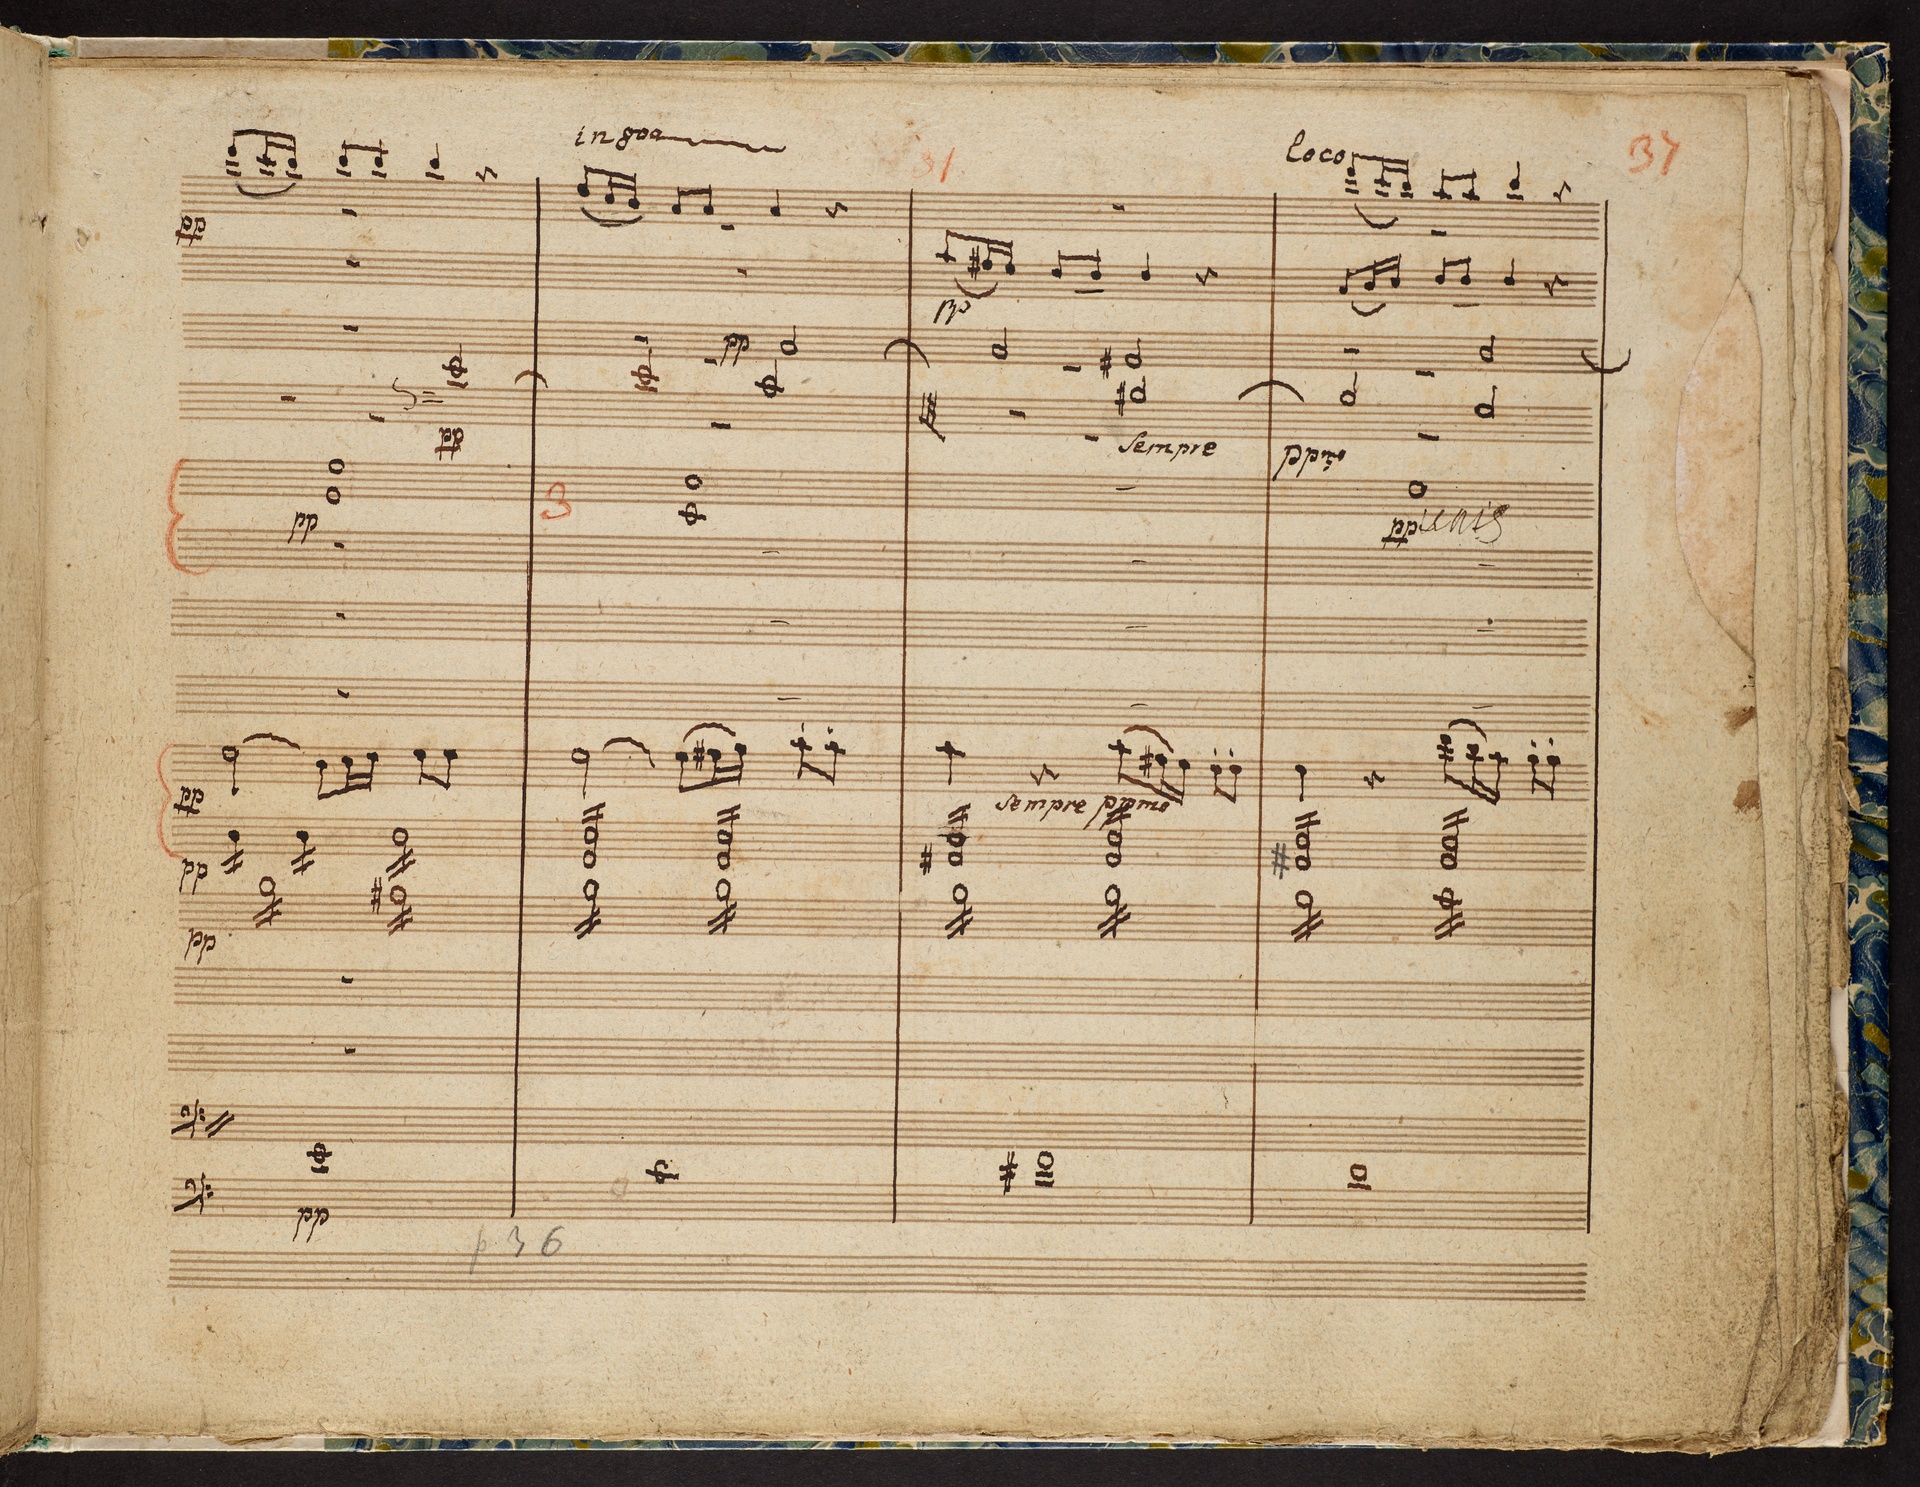 in 8va
31
loco
37
pp
pp
pp
pp
sempre
ppmo
pp
3
pp
pp
sempre ppmo
pp
pp
pp
p 36